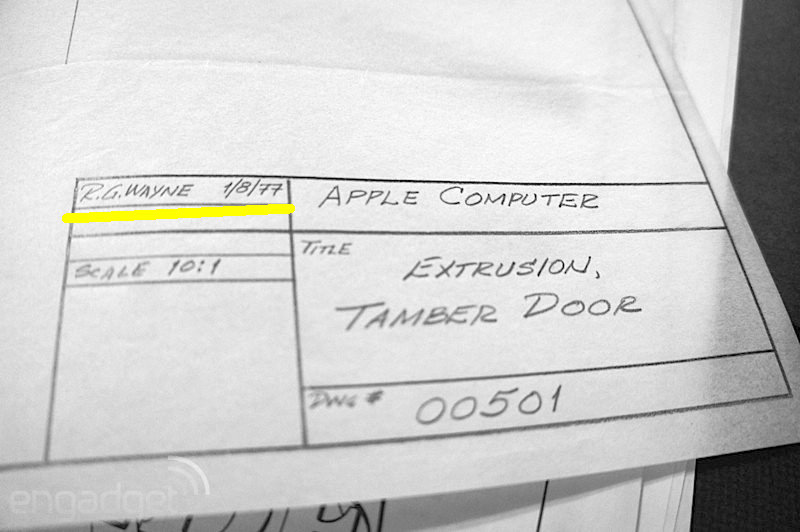 R.G. WAYNE 1/8/77
APPLE COMPUTER
TITLE
EXTRUSION,
TAMBER DOOR
SCALE 10:1
DWG # 00501
engadget